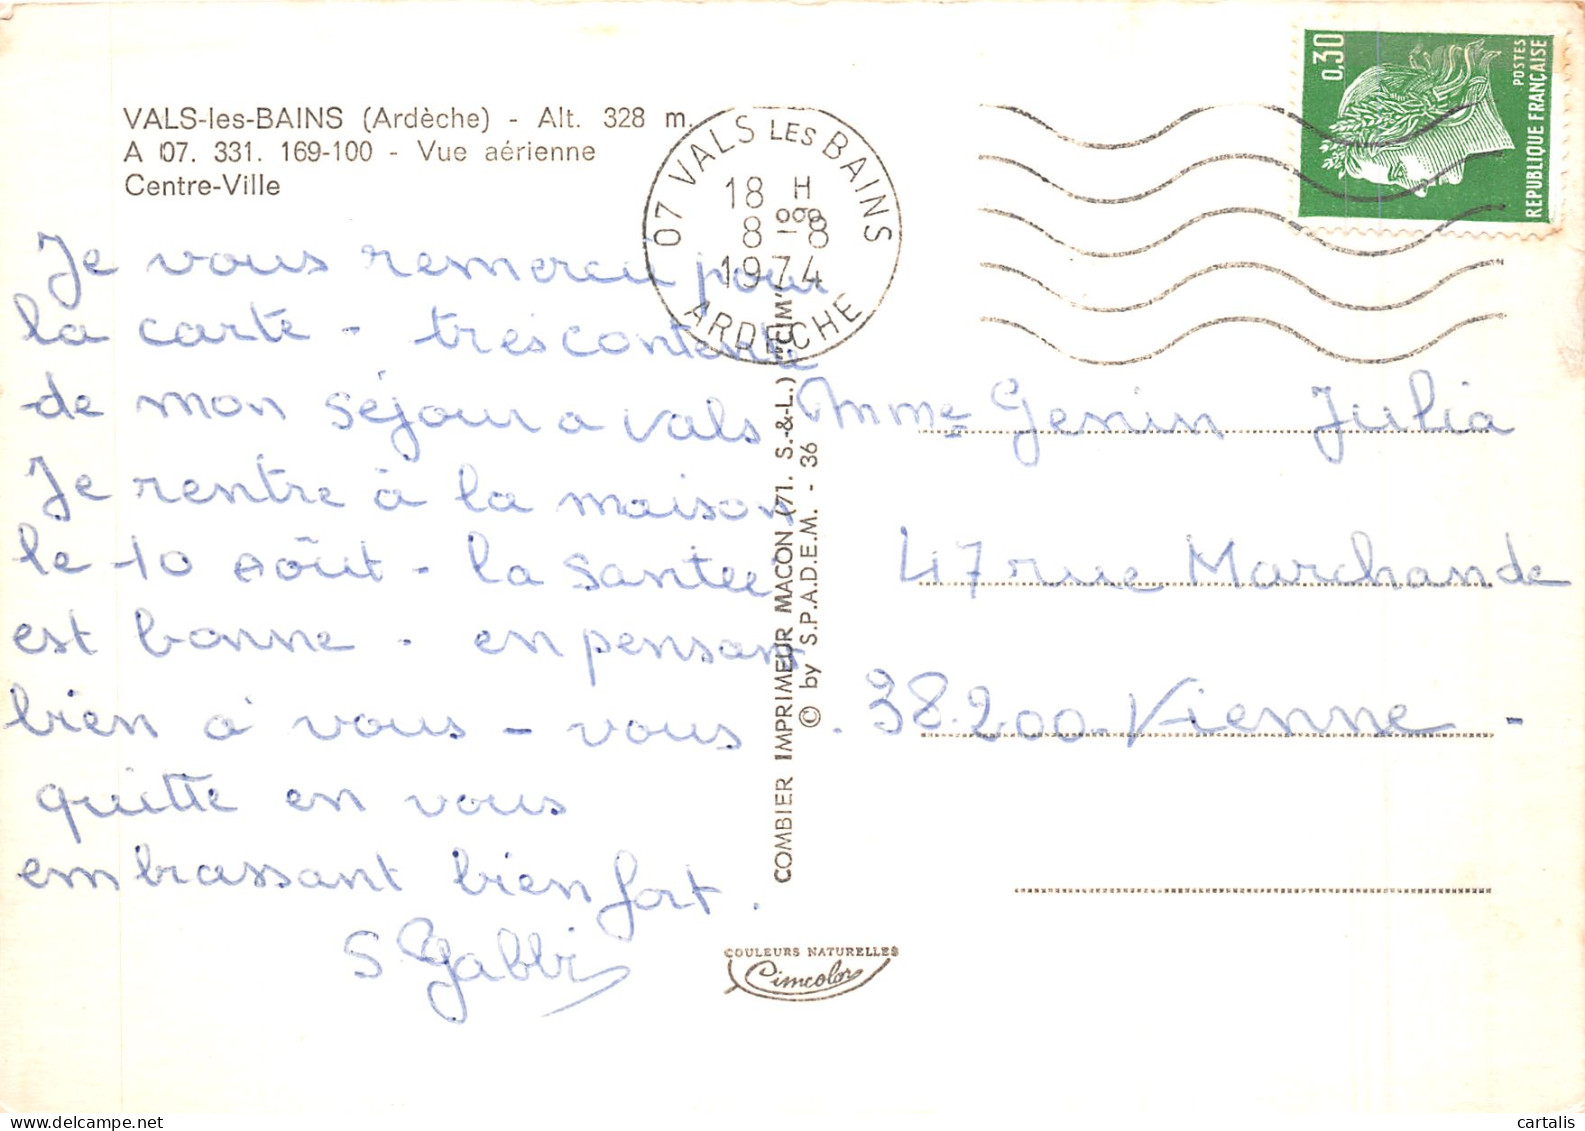 VALS-les-BAINS (Ardèche) - Alt. 328 m.
A 07. 331. 169-100 - Vue aérienne
Centre-Ville
Je vous remercie pour
la carte - très contente
de mon séjour a vals
Je rentre à la maison
le 10 Août - la santee
est bonne - en pensant
bien a vous - vous
quitte en vous
embrassant bien fort.
S Gabbi
07 VALS LES BAINS
18 H
8 - 8
1974
ARDECHE
COMBIER IMPRIMEUR MACON (71. S.-&-L.) "CIM"
© by S.P.A.D.E.M. - 36
COULEURS NATURELLES
Cimcolor
0,30
POSTES
REPUBLIQUE FRANÇAISE
Mme Genin Julia
47 rue Marchande
38.200-Vienne -
delcampe.net
cartalis